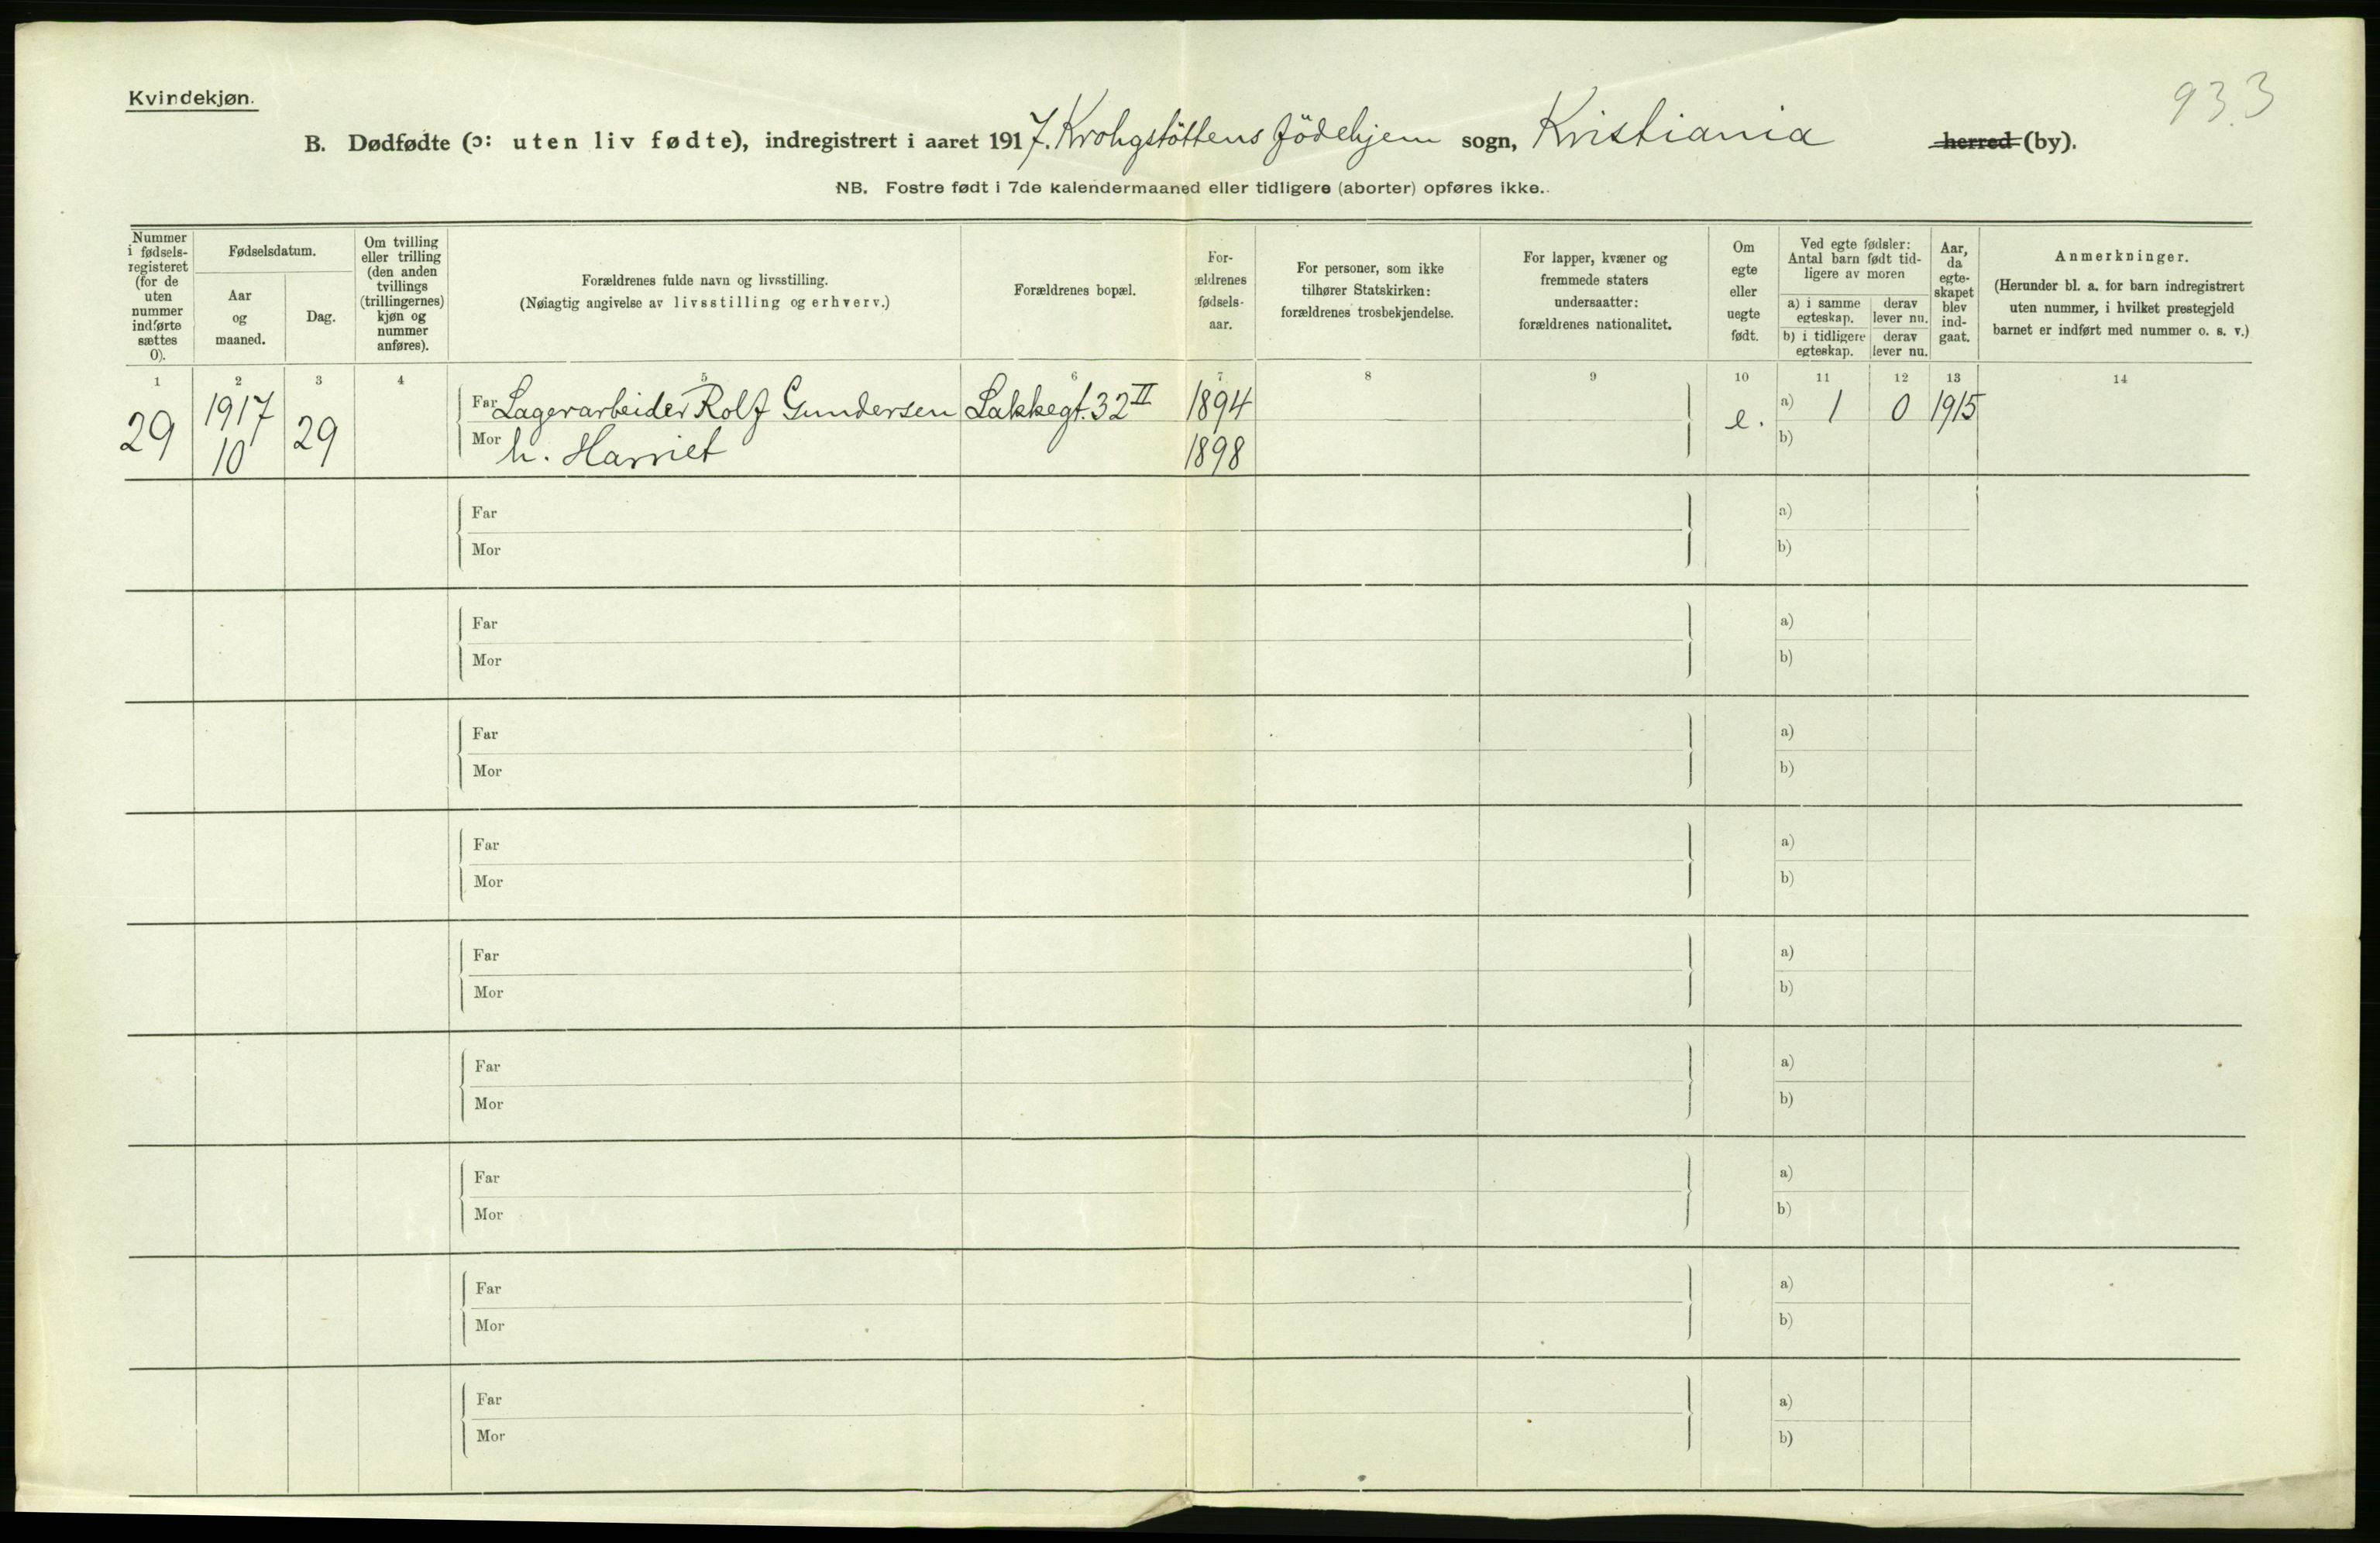 Kvindekjøn.
933
B. Dødfødte (ɔ: uten liv fødte), indregistrert i aaret 1917. Krohgstöttens födehjem sogn, Kristiania herred (by).
NB. Fostre født i 7de kalendermaaned eller tidligere (aborter) opføres ikke.
Nummer
i fødsels-
registeret
(for de
uten
nummer
indførte
sættes
0).
Fødselsdatum.
Aar
og
maaned.
Dag.
Om tvilling
eller trilling
(den anden
tvillings
(trillingernes)
kjøn og
nummer
anføres).
Forældrenes fulde navn og livsstilling.
(Nøiagtig angivelse av livsstilling og erhverv.)
Forældrenes bopæl.
For-
ældrenes
fødsels-
aar.
For personer, som ikke
tilhører Statskirken:
forældrenes trosbekjendelse.
For lapper, kvæner og
fremmede staters
undersaatter:
forældrenes nationalitet.
Om
egte
eller
uegte
født.
Ved egte fødsler:
Antal barn født tid-
ligere av moren
a) i samme
egteskap.
derav
lever nu.
b) i tidligere
egteskap.
derav
lever nu.
Aar,
da
egte-
skapet
blev
ind-
gaat.
Anmerkninger.
(Herunder bl. a. for barn indregistrert
uten nummer, i hvilket prestegjeld
barnet er indført med nummer o. s. v.)
1 2 3 4 5 6 7 8 9 10 11 12 13 14
29 1917 10 29 Far Lagerarbeider Rolf Gundersen Lakkegt. 32 II 1894 e. a) 1 0 1915
Mor h. Harriet 1898 b)
Far a)
Mor b)
Far a)
Mor b)
Far a)
Mor b)
Far a)
Mor b)
Far a)
Mor b)
Far a)
Mor b)
Far a)
Mor b)
Far a)
Mor b)
Far a)
Mor b)